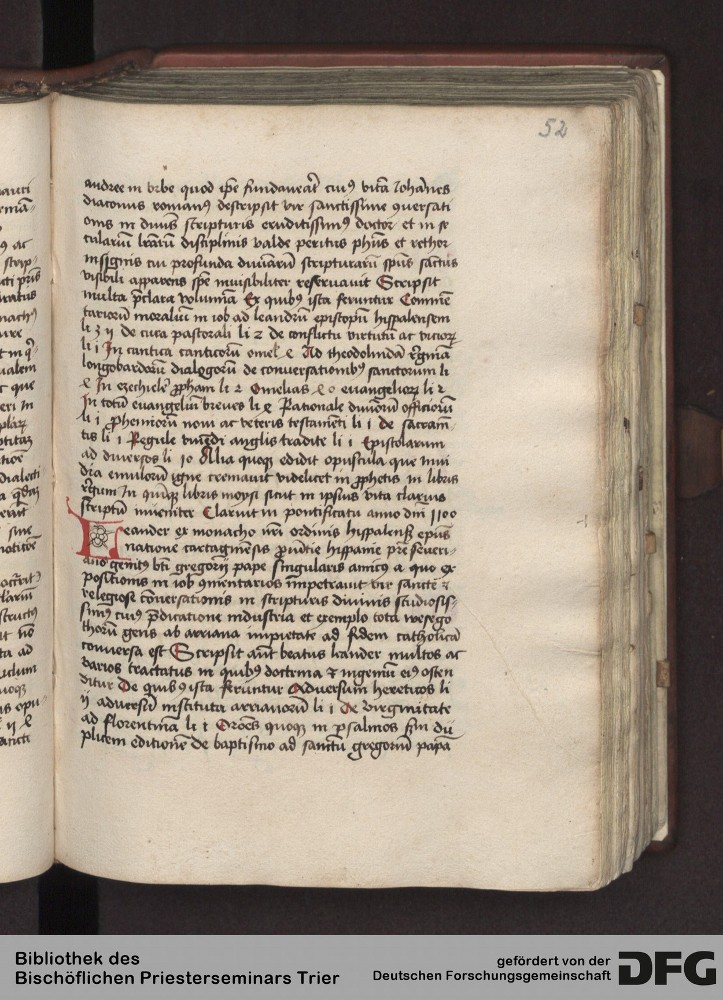 52
andree in vrbe quod ip̄e fundauerat̄ cuiꝰ vitā Iohānes
diaconus romanꝰ descripsit vir sanctissime ꝯuersati
onis in diuīs scripturis eruditissimꝰ doctor et in se
culariū lr̄arū disciplinis valde peritus ph̄us et rethor
insignis cui profunda diuinarū scripturarū spūs sāctus
visibili apparens sp̄e inuisibiliter reseruauit Scripsit
multa p̄clara volumīa Ex quibꝰ ista feruntur Commē
tariorū moraliū in iob ad leandrū episcopū hispalensem
li 3 ii de cura pastorali li 2 de conflictu virtutū ac vicioꝝ
li i In cantica canticorū omel e Ad theodolindā r̄ginā
longobardorū dialogorū de conversationibꝰ sanctorum li
e In ezechielē ꝓpham li 2 Omelias e o euangelioꝝ li 2
In totū euangeliū breues li e Rationale diuinorū officiorū
li i ꝓhemiorū noui ac veteris testamēti li i de sacram̄
tis li i Regule viuēdi anglis tradite li i Epistolarum
ad diuersos li 10 Alia quoqꝫ edidit opuscula que inui
dia emulorū igne cremauit videlicet in ꝓphetis in libris
r̄gum In quīqꝫ libris moysi sicut in ipsius vita clarius
scriptū inuenitur Claruit in pontificatu anno dm̄ 1100
Leander ex monacho nr̄i ordinis hispalenẜ ep̄us
natione cartaginēsis ꝓuītie hispanie pre seueri
ano genitꝰ bt̄i gregorij pape singularis amicꝰ a quo ex
positionis in iob ꝯmentarios impetrauit vir sancte ⁊
religiose cōuersationis in scripturis diuinis studiosis-
simꝰ cuiꝰ p̄dicatione industria et exemplo tota wesego
thorū gens ab arriana impietate ad fidem catholicā
conuersa est Scripsit aūt beatus leander multos ac
varios tractatus in quibꝰ doctrina ⁊ ingeniū eiꝰ osten
ditur De quibꝰ ista feruntur Aduersum hereticos li
ij aduersū instituta arrianorū li i De virginitate
ad florentinā li i Orōes quoqꝫ in psalmos sm̄ du
plicem editionē de baptismo ad sanctū gregoriū papā
Bibliothek des
Bischöflichen Priesterseminars Trier
gefördert von der
Deutschen Forschungsgemeinschaft
DFG